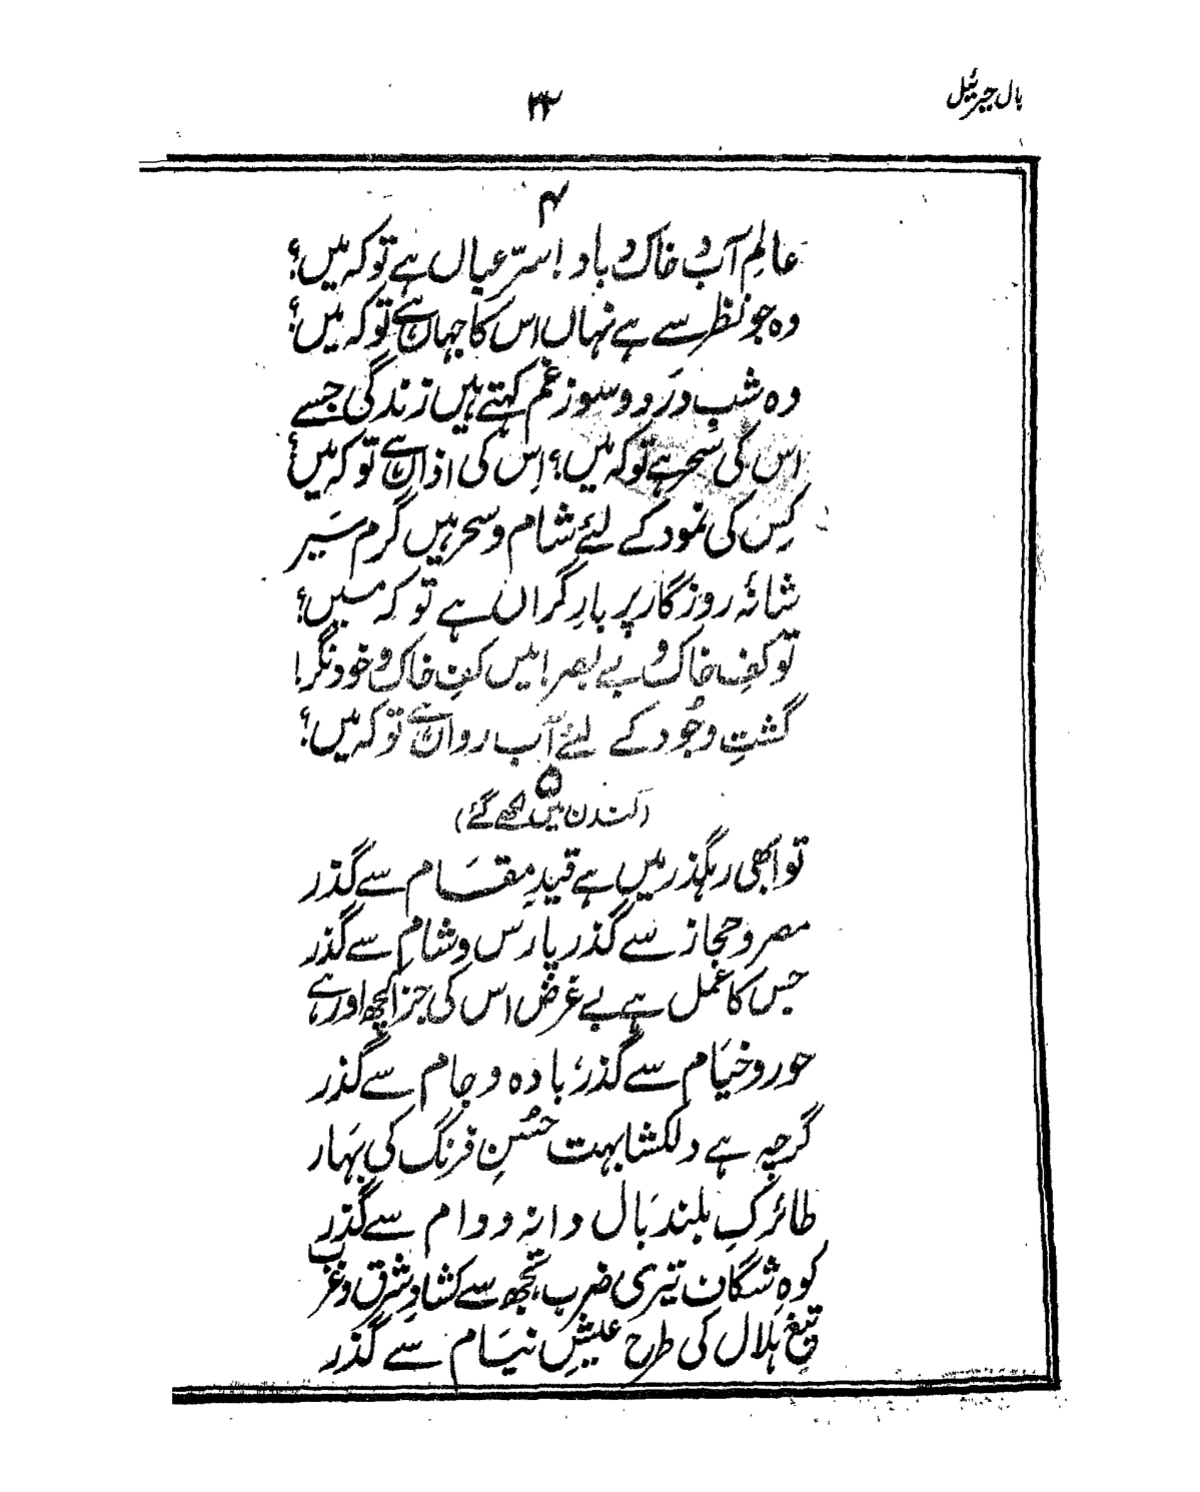 بال جبرئیل
۳۲
۴
عالمِ آب و خاک و باد! سرِّ عیاں ہے تو کہ میں؟
وہ جو نظر سے ہے نہاں اس کا جہاں ہے تو کہ میں؟
وہ شبِ درد و سوز و غم کہتے ہیں زندگی جسے
اس کی سحر ہے تو کہ میں؟ اِس کی اذاں ہے تو کہ میں؟
کِس کی نمود کے لئے شام و سحر ہیں گرمِ سَیر
شانۂ روزگار پر بارِ گراں ہے تو کہ میں؟
تو کفِ خاک و بے بصر! میں کفِ خاک و خود نگر!
کشتِ وجُود کے لئے آبِ رواں ہے تو کہ میں؟
۵
(لندن میں لکھے گئے)
تو ابھی رہگذر میں ہے قیدِ مقَام سے گذر
مصر و حجاز سے گذر پارس و شام سے گذر
جس کا عمل ہے بے غرض اس کی جزا کچھ اور ہے
حور و خیَام سے گذر، بادہ و جام سے گذر
گرچہ ہے دلکشا بہت حُسنِ فرنگ کی بہَار
طائرکِ بلند بَال دانہ و دام سے گذر
کوہ شگاف تیری ضرب، تجھ سے کشادِ شرق و غرب
تیغِ ہلال کی طرح عیشِ نیَام سے گذر